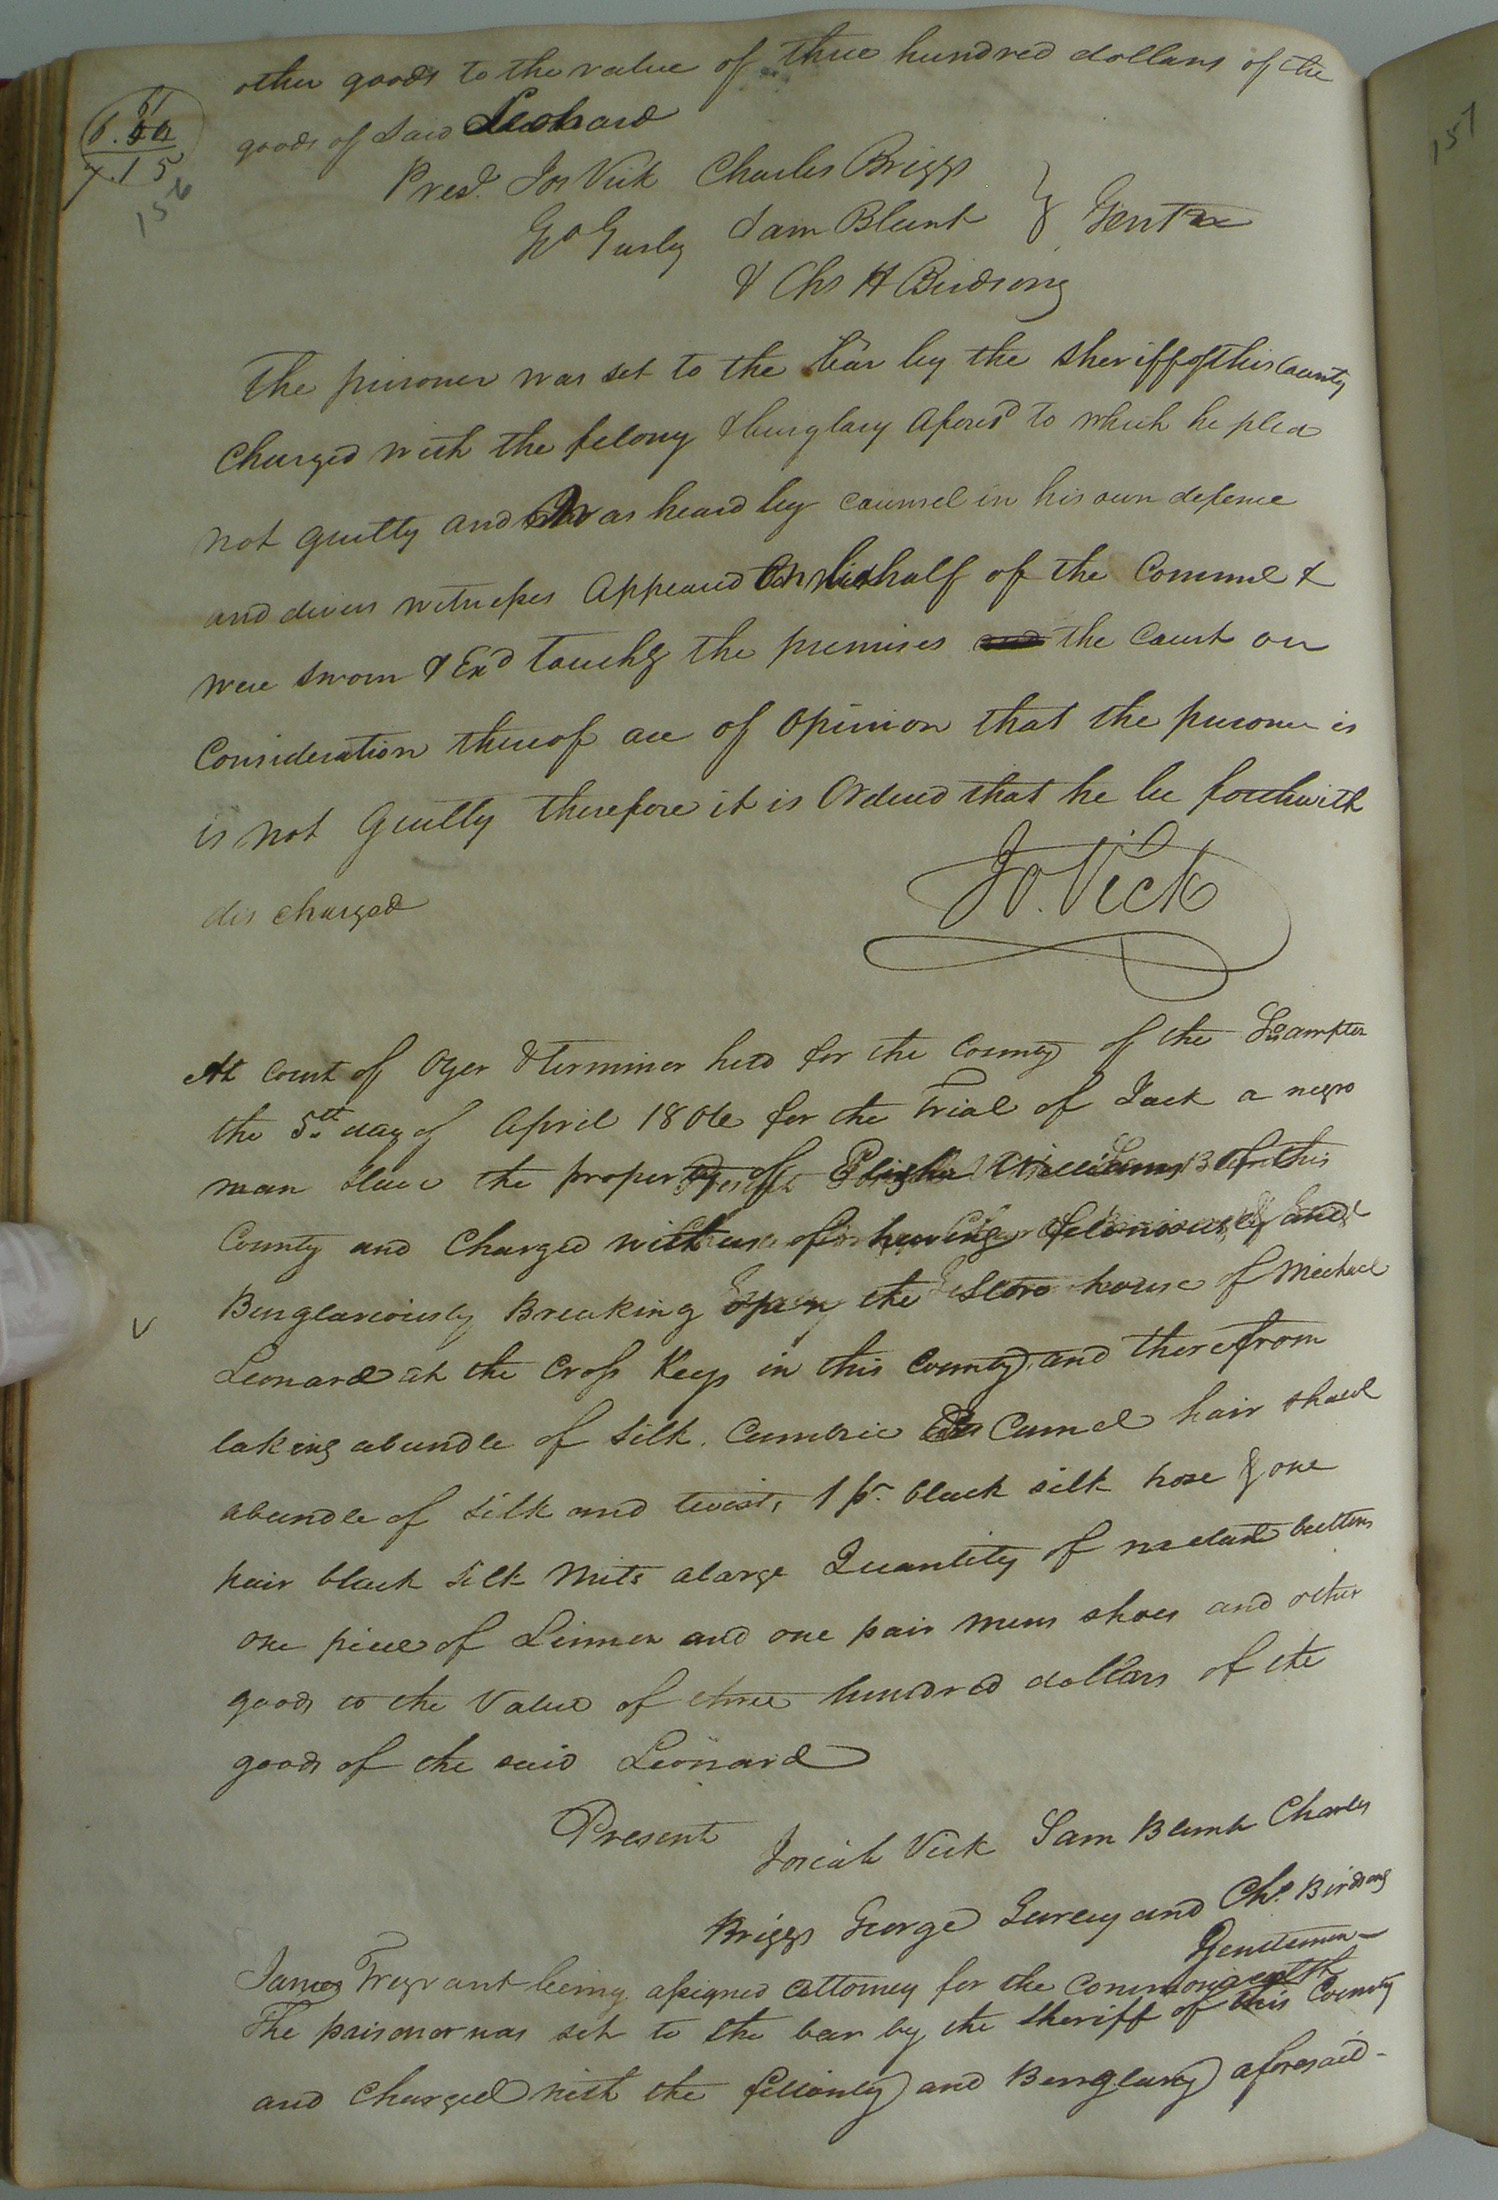 other goods to the value of three hundred dollars of the
61
6.
7.15
156
157
goods of said Leonard
Pres.t Jos Vick Charles Briggs
Go Gurly Sam Blunt } Gent
& Chs H Birdsong
The prisoner was set to the bar by the Sheriff of this County
Charged with the felony & burglary afores'd to which he plea
not guilty and was heard by Counsel in his own defence
and divers witnesses appeared On behalf of the Commel &
were sworn & Exd touchg the premises and the Court on
Consideration thereof are of Opinion that the prisoner is
is not Guilty therefore it is Ordered that he be forthwith
discharged
Jo. Vick
At Court of Oyer & terminer held for the County of the Southampton
the 5th day of April 1806 for the Trial of Jack a negro
man Slave the property of Elisha Williams of this
County and Charged with having feloniously and
Burglariously Breaking open the Store house of Michael
Leonard at the Cross Keys in this County and therefrom
taking abundle of silk. Cambric Camel hair shawl
abundle of silk and twist, 1 pr. black silk hose & one
pair black silk mits alarge Quantity of buttons
one piece of Linnen and one pair mens shoes and other
goods to the Value of three hundred dollars of the
goods of the said Leonard
Present Josiah Vick Sam Blunt Charles
Briggs George Gurley and Chs. Birdsong
Gentlemen
James Trezvant being assigned attorney for the Commonwealth
The prisoner was set to the bar by the Sheriff of this County
and Charged with the fellonly and Burglary aforesaid -